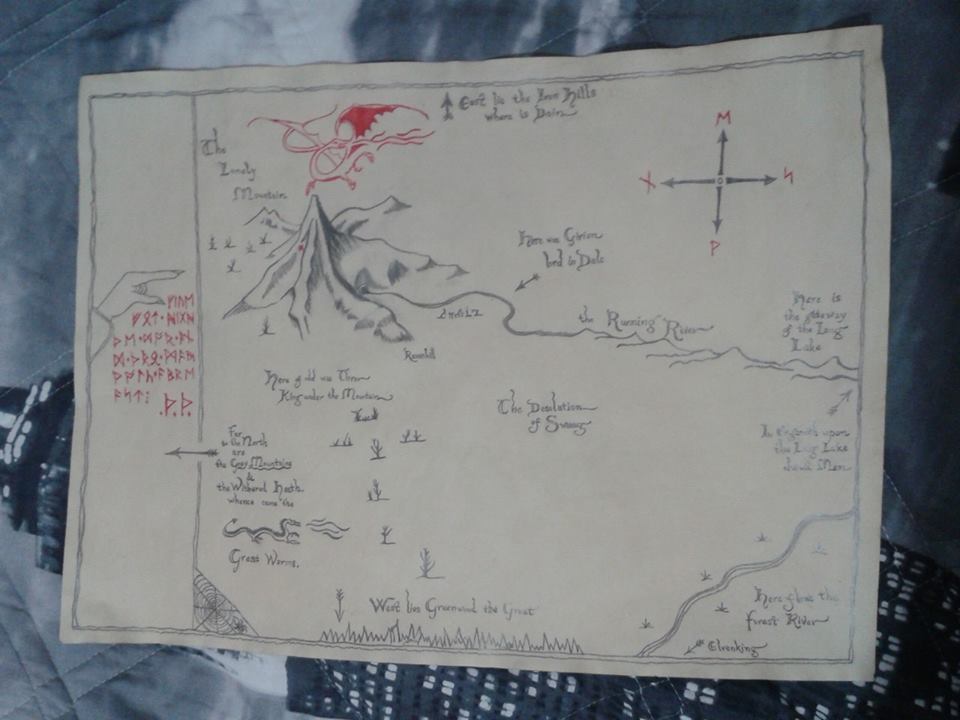 East lie the Iron Hills
where is Dain
The
Lonely
Mountain
ᛖ
ᚾ
ᛋ
ᚹ
Here was Girion
lord in Dale
ᚠᛁᚢᛖ
ᚠᛟᛏ·ᚻᛁᚷᚻ
ᚦᛖ·ᛞᚩᚱ·ᚪᚾ
ᛞ·ᚦᚱᛟ·ᛗᚪᚣ
ᚹᚪᛚᚳ·ᚪᛒᚱᛖ
ᚪᛋᛏ:
ᚦ.ᚦ.
the Running River
Here is
the gateway
of the Long
Lake
Ravenhill
Here of old was Thror
King under the Mountain
The Desolation
of Smaug
Far
to the North
are
the Grey Mountains
&
the Withered Heath
whence came the
Great Worms.
In Esgaroth upon
the Long Lake
dwell Men
West lies Greenwood the Great
Here flows the
forest River
Elvenking